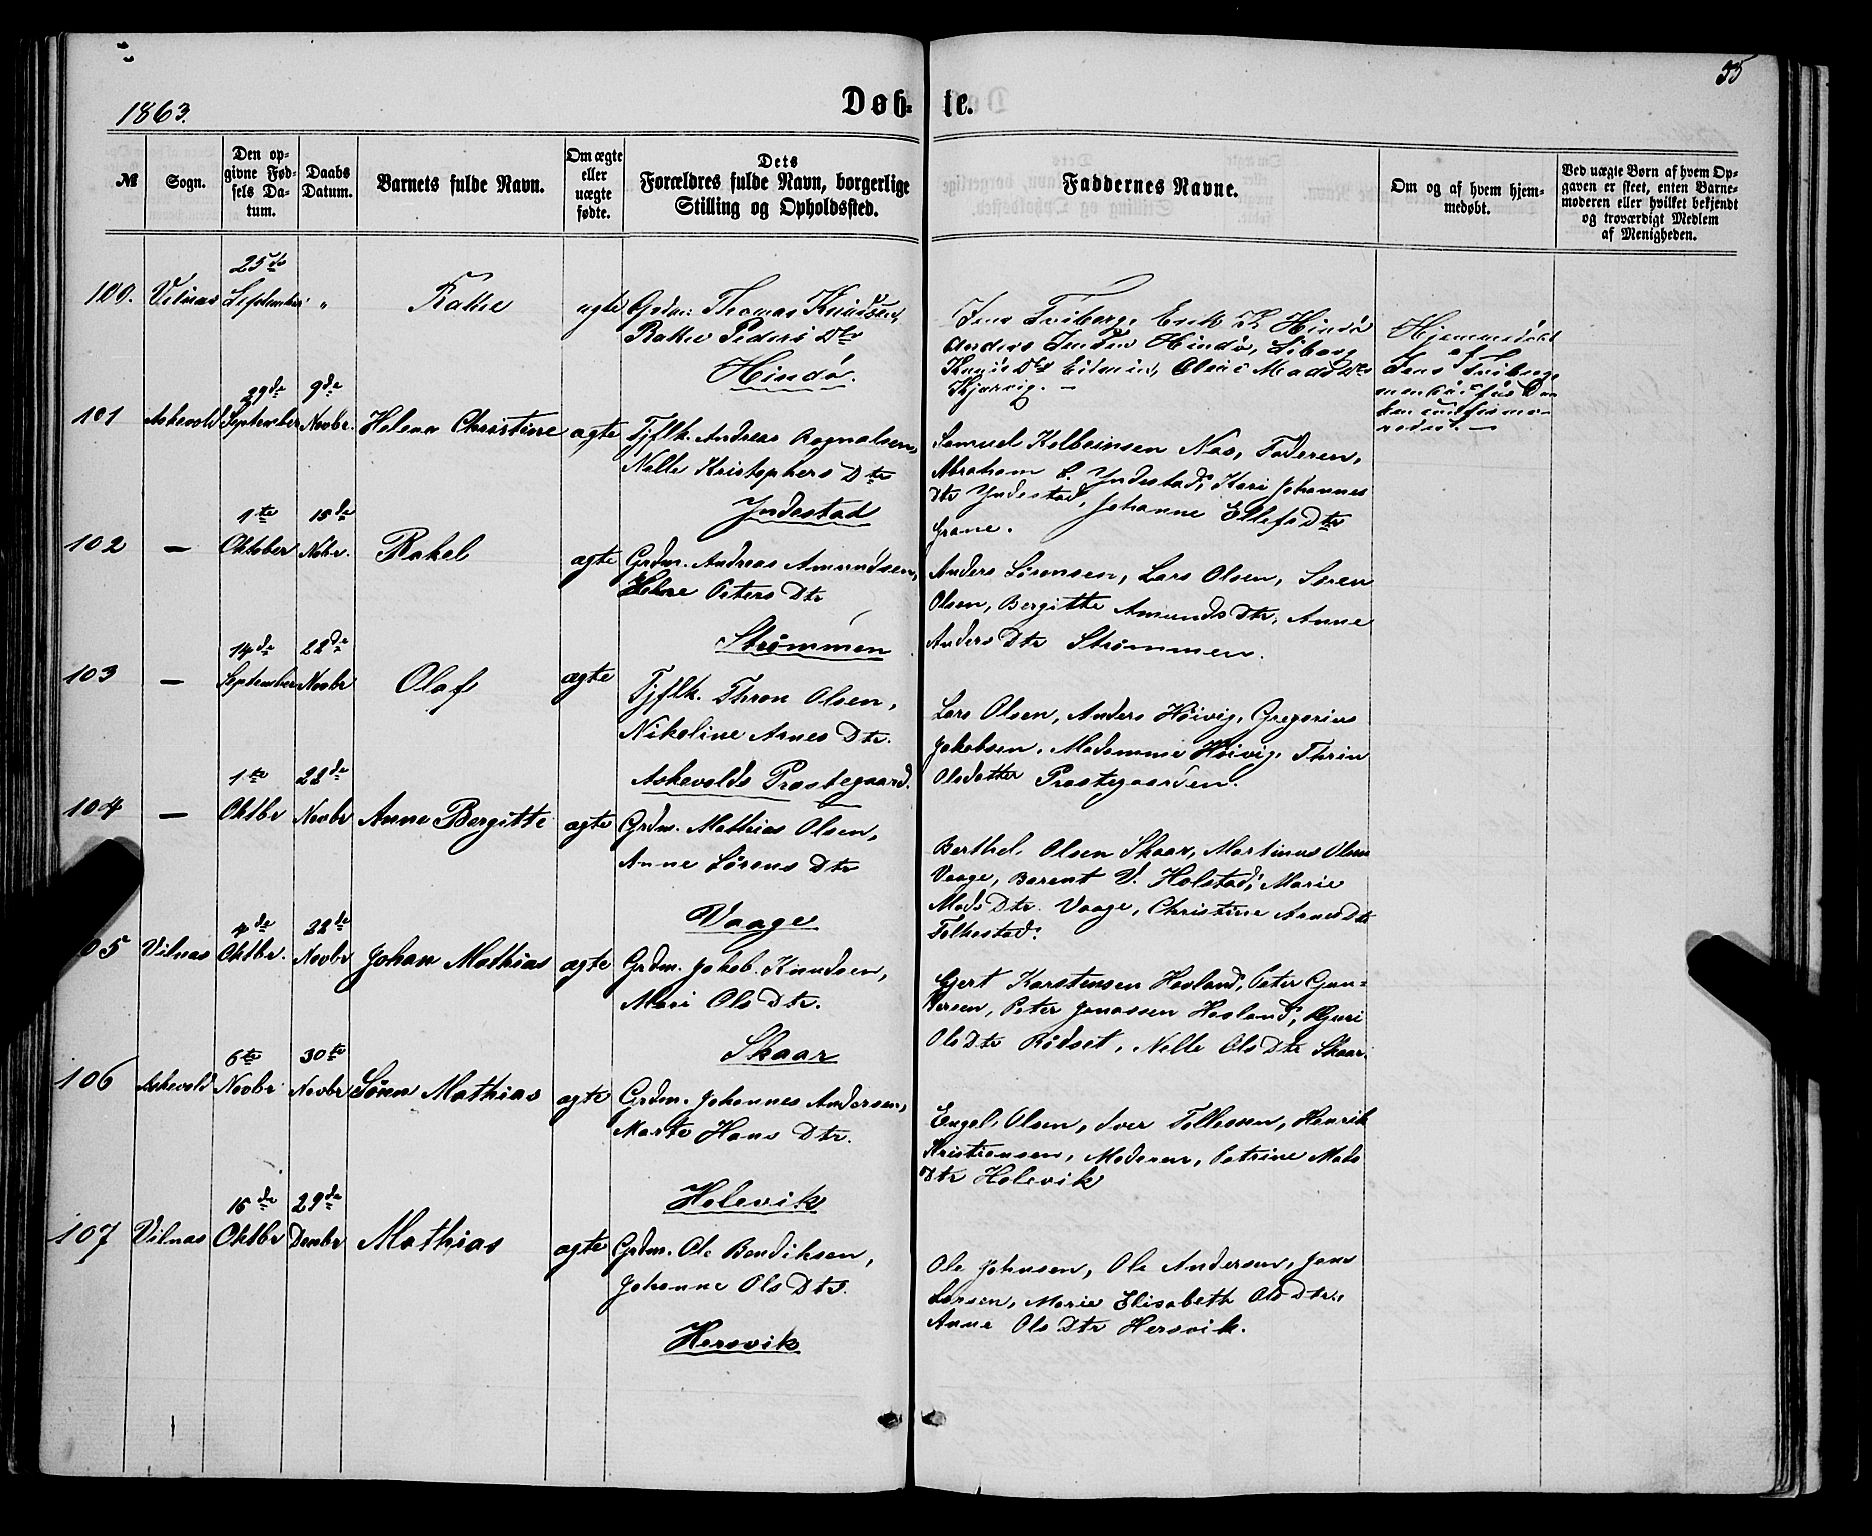 1863.
Døb- te.
35
№
Sogn.
Den op-
givne Fød-
sels Da-
tum.
Daabs
Datum.
Barnets fulde Navn.
Om ægte
eller
uægte
fødte.
Dets
Forældres fulde Navn, borgerlige
Stilling og Opholdssted.
Faddernes Navne.
Om og af hvem hjem-
medøbt.
Ved uægte Børn af hvem Op-
gaven er skeet, enten Barne-
moderen eller hvilket bekjendt
og troværdigt Medlem
af Menigheden.
25de
100. Vilnæs September " ægte Grdm. Thomas Knudsen,
Peders Dtr
Hindø.
Jens Friberg, Erik K. Hindø
Anders Jensen Hindø,
Mads Dtr
Hjemmedøbt
af
Jens Friberg
29de 9de
101 Askevold September Novbr. Helene Christine ægte Tjflk. Andreas Rognalsen,
Nelle Kristophers Dtr
Yndestad
Samuel Kolbeinsen Næs, Faderen,
Abraham E. Yndestad, Kari Johannes
Dtr Yndestad, Johanne Ellefs Dtr
Grane.
1te 15de
102 — Oktober Nobr. Rakel ægte Grdm. Andreas Amundsen,
Helene Peters Dtr
Strømmen
Anders Sørensen, Lars Olsen, Søren
Olsen, Bergitte Amunds Dtr, Anne
Anders Dtr Strømmen.
14de 22de
103 — September Novbr Olaf ægte Tjflk. Thron Olsen,
Nikoline Arnes Dtr.
Askevolds Præstegaard.
Lars Olsen, Anders Høivig, Gregorius
Jakobsen, Madamme Høivig, Thrin
Olsdatter Præstegaarden.
1te 22de
104 — Oktbr Novbr Anne Bergitte ægte Grdm. Mathias Olsen,
Anne Sørens Dtr
Vaage
Berthel Olsen Skaar, Martinus Olsen
Vaage, Berent V. Holstad, Marie
Mads Dtr. Vaage, Christine Arnes Dtr
Folkestad.
4de 22de
105 Vilnæs Oktbr. Novbr Johan Mathias ægte Grdm. Jakob Knudsen,
Mari Ols Dtr.
Skaar
Gjert Karstensen Hovland, Peter Gun-
dersen, Peter Jonassen Hovland, Gjuri
Ols Dtr Rødset, Nelle Ols Dtr Skaar.
6te 30te
106 Askevold Novbr Novbr Søren Mathias ægte Grdm. Johannes Andersen,
Marte Hans Dtr.
Holevik
Engel Olsen, Iver Tollessen, Henrik
Kristiansen, Moderen, Petrine Mads
Dtr Holevik
15de 29de
107 Vilnæs Oktbr Dembr Mathias ægte Grdm. Ole Bendiksen,
Johanne Ols Dtr.
Hersvik
Ole Johnsen, Ole Andersen, Jens
Larsen, Marie Elisabeth Ols Dtr,
Anne Ols Dtr Hersvik.